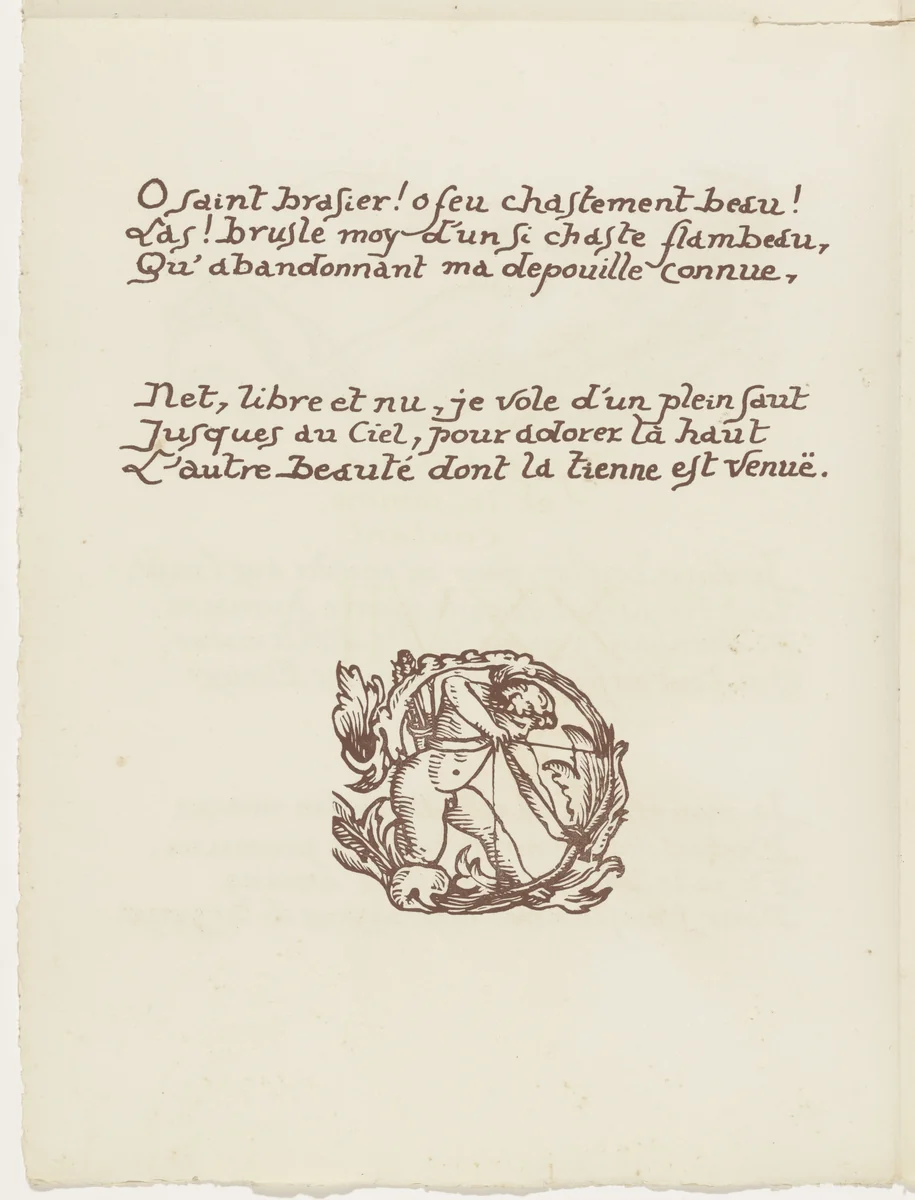 O saint brasier! o feu chastement beau!
Las! brusle moy d'un si chaste flambeau,
Qu'abandonnant ma depouille connue,
Net, libre et nu, je vole d'un plein saut
Jusques au Ciel, pour adorer là haut
L'autre beauté dont la tienne est venuë.